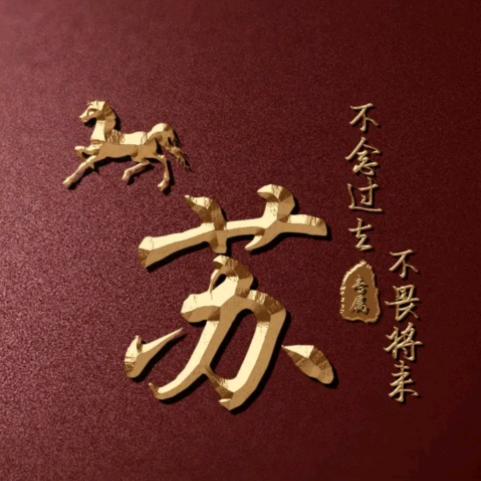 苏
不念过去
专属
不畏将来